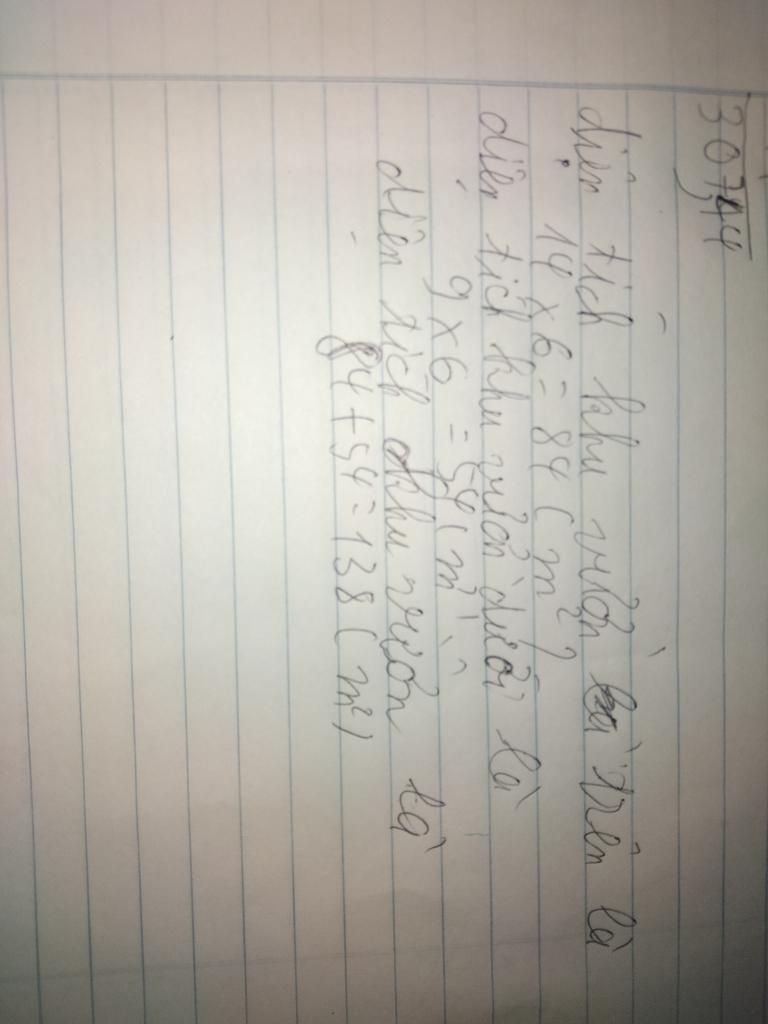 diện tích khu vườn trên là
14 x 6 = 84 (m²)
diện tích khu vườn dưới là
9 x 6 = 54 (m²)
diện tích khu vườn là
84 + 54 = 138 (m²)